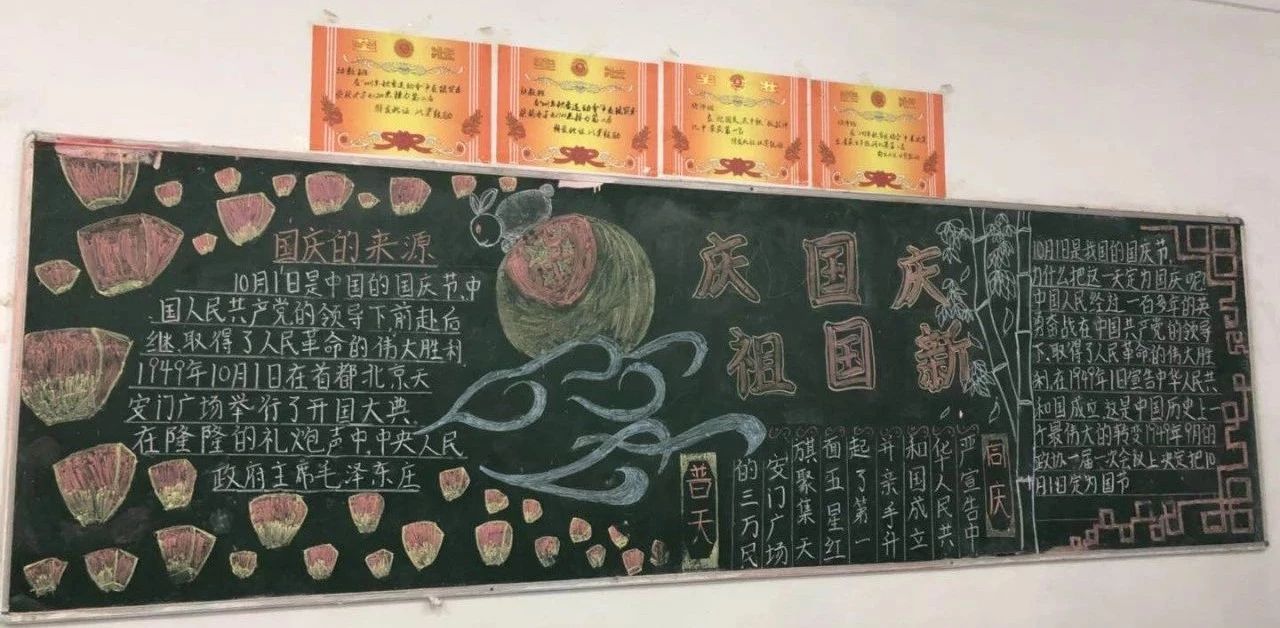 奖状
特发此证 以资鼓励
奖状
特发此证 以资鼓励
奖状
特发此证 以资鼓励
奖状
国庆的来源
10月1日是中国的国庆节,中
国人民共产党的领导下,前赴后
继,取得了人民革命的伟大胜利
1949年10月1日在首都北京天
安门广场举行了开国大典.
在隆隆的礼炮声中,中央人民
政府主席毛泽东庄
庆国庆
祖国新
同庆
严宣告中
华人民共
和国成立
并亲手升
起了第一
面五星红
旗聚集天
安门广场
的三万民
普天
10月1日是我国的国庆节,
为什么把这一天定为国庆呢?
中国人民经过一百多年的英
勇奋战在中国共产党的领导
下,取得了人民革命的伟大胜
利,在1949年1日宣告中华人民共
和国成立.这是中国历史上一
个最伟大的转变1949年9月的
政协一届一次会议上决定把10
月1日定为国节